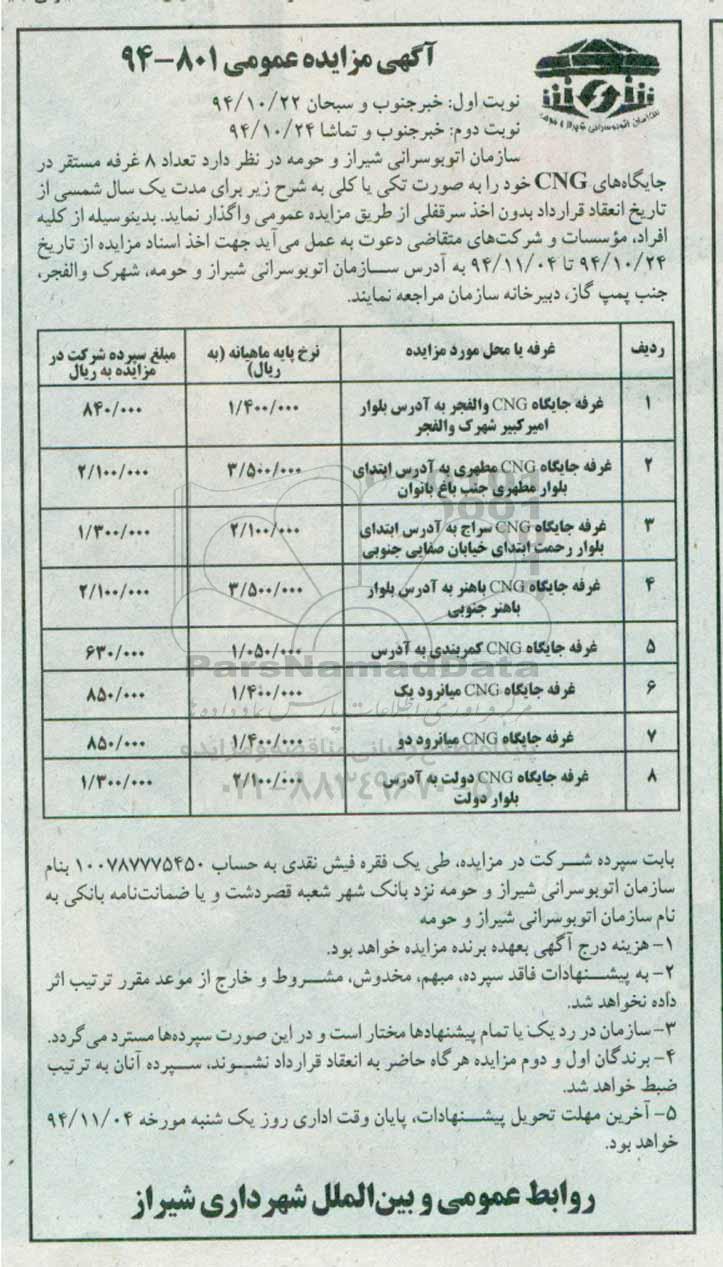 آگهی مزایده عمومی ۸۰۱-۹۴
نوبت اول: خبرجنوب و سبحان ۹۴/۱۰/۲۲
نوبت دوم: خبرجنوب و تماشا ۹۴/۱۰/۲۴
سازمان اتوبوسرانی شیراز و حومه
سازمان اتوبوسرانی شیراز و حومه در نظر دارد تعداد ۸ غرفه مستقر در
جایگاه‌های CNG خود را به صورت تکی یا کلی به شرح زیر برای مدت یک سال شمسی از
تاریخ انعقاد قرارداد بدون اخذ سرقفلی از طریق مزایده عمومی واگذار نماید. بدینوسیله از کلیه
افراد، مؤسسات و شرکت‌های متقاضی دعوت به عمل می‌آید جهت اخذ اسناد مزایده از تاریخ
۹۴/۱۰/۲۴ تا ۹۴/۱۱/۰۴ به آدرس سازمان اتوبوسرانی شیراز و حومه، شهرک والفجر،
جنب پمپ گاز، دبیرخانه سازمان مراجعه نمایند.
ردیف غرفه یا محل مورد مزایده نرخ پایه ماهیانه (به ریال) مبلغ سپرده شرکت در مزایده به ریال
۱ غرفه جایگاه CNG والفجر به آدرس بلوار امیرکبیر شهرک والفجر ۱/۴۰۰/۰۰۰ ۸۴۰/۰۰۰
۲ غرفه جایگاه CNG مطهری به آدرس ابتدای بلوار مطهری جنب باغ بانوان ۳/۵۰۰/۰۰۰ ۲/۱۰۰/۰۰۰
۳ غرفه جایگاه CNG سراج به آدرس ابتدای بلوار رحمت ابتدای خیابان صفایی جنوبی ۲/۱۰۰/۰۰۰ ۱/۳۰۰/۰۰۰
۴ غرفه جایگاه CNG باهنر به آدرس بلوار باهنر جنوبی ۳/۵۰۰/۰۰۰ ۲/۱۰۰/۰۰۰
۵ غرفه جایگاه CNG کمربندی به آدرس ۱/۰۵۰/۰۰۰ ۶۳۰/۰۰۰
۶ غرفه جایگاه CNG میانرود یک ۱/۴۰۰/۰۰۰ ۸۵۰/۰۰۰
۷ غرفه جایگاه CNG میانرود دو ۱/۴۰۰/۰۰۰ ۸۵۰/۰۰۰
۸ غرفه جایگاه CNG دولت به آدرس بلوار دولت ۲/۱۰۰/۰۰۰ ۱/۳۰۰/۰۰۰
ParsNamadData
مرکز فرآوری اطلاعات پارس نماد داده ها
پایگاه اطلاع رسانی مناقصه و مزایده
۰۲۱-۸۸۳۴۹۶۷۰-۵
بابت سپرده شرکت در مزایده، طی یک فقره فیش نقدی به حساب ۱۰۰۷۸۷۷۷۵۴۵۰ بنام
سازمان اتوبوسرانی شیراز و حومه نزد بانک شهر شعبه قصردشت و یا ضمانت‌نامه بانکی به
نام سازمان اتوبوسرانی شیراز و حومه
۱- هزینه درج آگهی بعهده برنده مزایده خواهد بود.
۲- به پیشنهادات فاقد سپرده، مبهم، مخدوش، مشروط و خارج از موعد مقرر ترتیب اثر
داده نخواهد شد.
۳- سازمان در رد یک یا تمام پیشنهادها مختار است و در این صورت سپرده‌ها مسترد می‌گردد.
۴- برندگان اول و دوم مزایده هرگاه حاضر به انعقاد قرارداد نشوند، سپرده آنان به ترتیب
ضبط خواهد شد.
۵- آخرین مهلت تحویل پیشنهادات، پایان وقت اداری روز یک شنبه مورخه ۹۴/۱۱/۰۴
خواهد بود.
روابط عمومی و بین‌الملل شهرداری شیراز